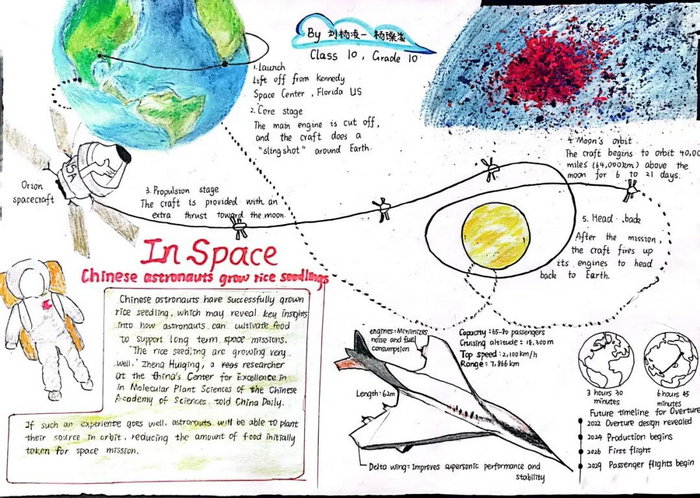 By 刘杨凌一 杨璨溪
Class 10, Grade 10
1. launch
Lift off from Kennedy
Space Center, Florida US
2. Core stage
The main engine is cut off,
and the craft does a
"slingshot" around Earth.
Orion
spacecraft
3. Propulsion stage
The craft is provided with an
extra thrust toward the moon
4. Moon's orbit
The craft begins to orbit 40,00
miles (64,000km) above the
moon for 6 to 21 days.
5. Head back
After the mission,
the craft fires up
its engines to head
back to Earth.
In Space
Chinese astronauts grow rice seedlings
Chinese astronauts have successfully grown
rice seedling, which may reveal key insights
into how astronauts can cultivate food
to support long term space missions.
"The rice seedling are growing very
well." Zheng Huiqing, a researcher
at the China's Center for Excellence in
in Molecular Plant Sciences of the Chinese
Academy of Sciences, told China Daily.
If such an experience goes well. astronauts will be able to plant
their source in orbit, reducing the amount of food initially
taken for space mission.
engines: Minimizes
noise and fuel
consumption
Capacity: 65-80 passengers
Cruising altitude: 18,300m
Top speed: 2,100km/h
Range: 7,866 km
Length: 62m
Delta wing: Improves supersonic performance and
stability
3 hours 30
minutes
6 hours 45
minutes
Future timeline for Overture
2022 Overture design revealed
2024 Production begins
2026 First flight
2029 Passenger flights begin